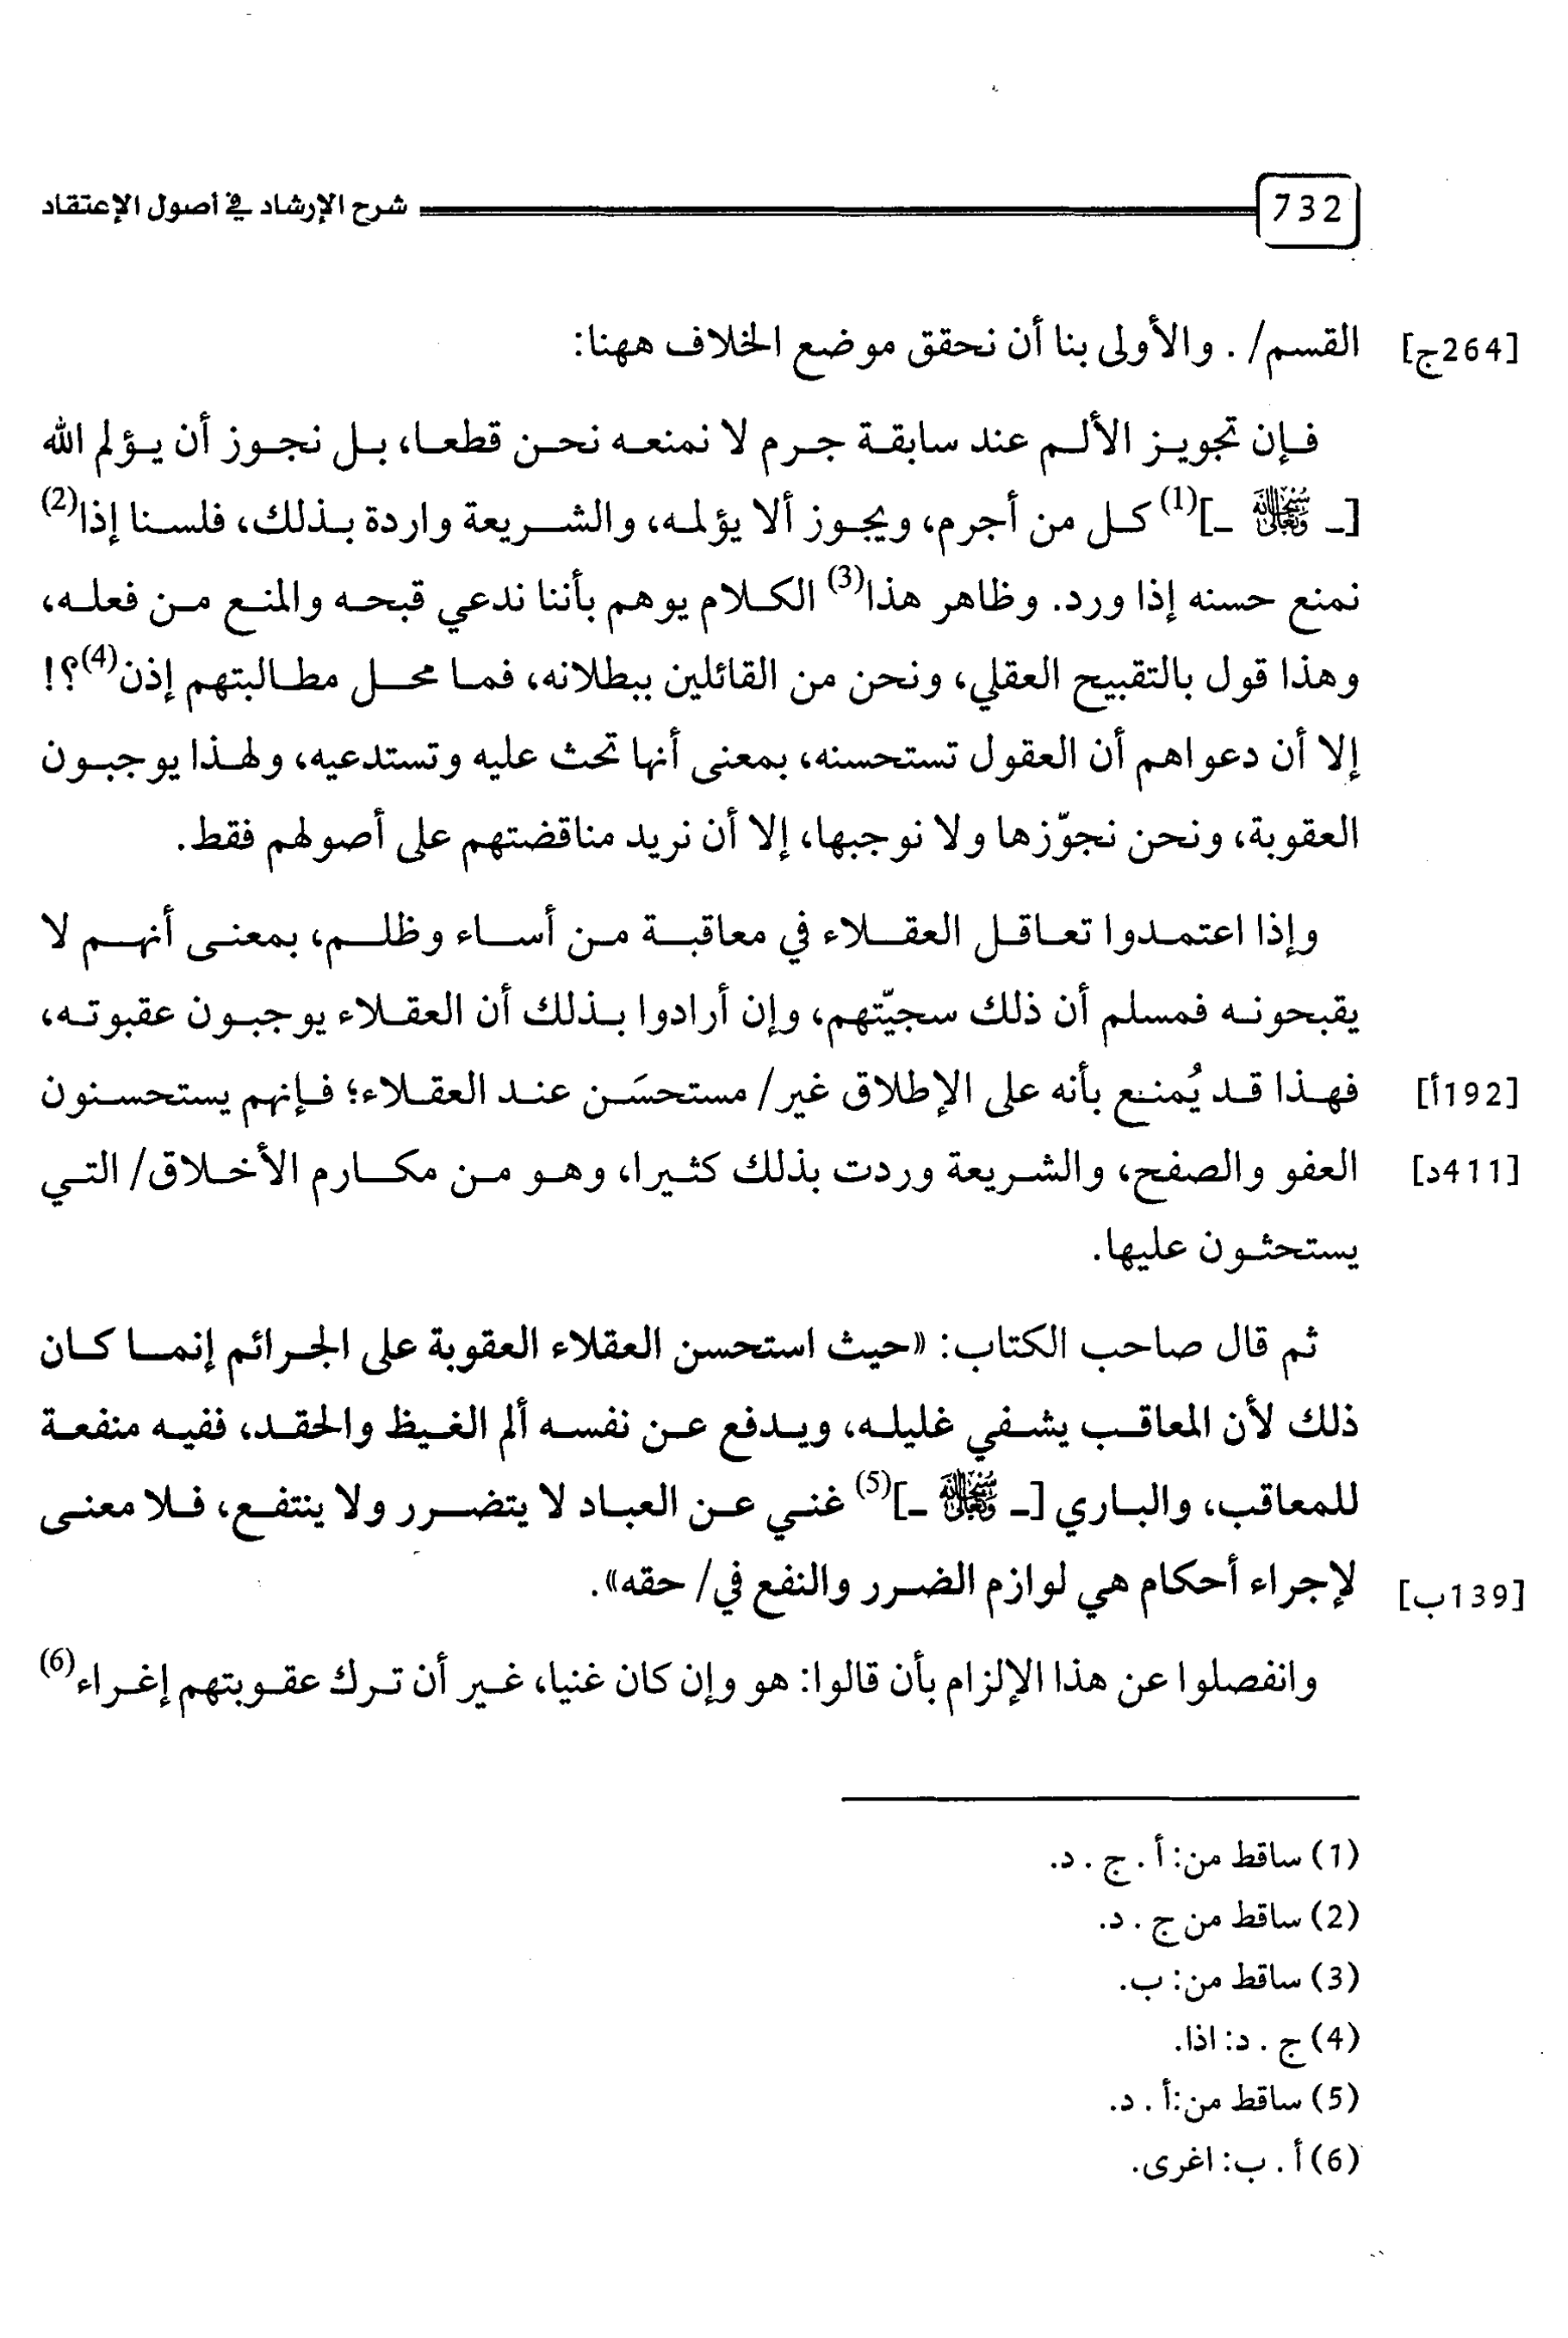 732 شرح الإرشاد في أصول الإعتقاد
[264ج] القسم/ . والأولى بنا أن نحقق موضع الخلاف ههنا:
فإن تجويز الألم عند سابقة جرم لا نمنعه نحن قطعا، بل نجوز أن يؤلم الله
[ـ سبحانه وتعالى ـ](1) كل من أجرم، ويجوز ألا يؤلمه، والشريعة واردة بذلك، فلسنا إذا(2)
نمنع حسنه إذا ورد. وظاهر هذا(3) الكلام يوهم بأننا ندعي قبحه والمنع من فعله،
وهذا قول بالتقبيح العقلي، ونحن من القائلين ببطلانه، فما محل مطالبتهم إذن(4)؟!
إلا أن دعواهم أن العقول تستحسنه، بمعنى أنها تحث عليه وتستدعيه، ولهذا يوجبون
العقوبة، ونحن نجوّزها ولا نوجبها، إلا أن نريد مناقضتهم على أصولهم فقط.
وإذا اعتمدوا تعاقل العقلاء في معاقبة من أساء وظلم، بمعنى أنهم لا
يقبحونه فمسلم أن ذلك سجيّتهم، وإن أرادوا بذلك أن العقلاء يوجبون عقبوته،
[192أ] فهذا قد يُمنع بأنه على الإطلاق غير/ مستحسَن عند العقلاء؛ فإنهم يستحسنون
[411د] العفو والصفح، والشريعة وردت بذلك كثيرا، وهو من مكارم الأخلاق/ التي
يستحثون عليها.
ثم قال صاحب الكتاب: «حيث استحسن العقلاء العقوبة على الجرائم إنما كان
ذلك لأن المعاقب يشفي غليله، ويدفع عن نفسه ألم الغيظ والحقد، ففيه منفعة
للمعاقب، والباري [ـ سبحانه وتعالى ـ](5) غني عن العباد لا يتضرر ولا ينتفع، فلا معنى
[139ب] لإجراء أحكام هي لوازم الضرر والنفع في/ حقه».
وانفصلوا عن هذا الإلزام بأن قالوا: هو وإن كان غنيا، غير أن ترك عقوبتهم إغراء(6)
(1) ساقط من: أ . ج . د.
(2) ساقط من ج . د.
(3) ساقط من: ب.
(4) ج . د: اذا.
(5) ساقط من:أ . د.
(6) أ . ب: اغرى.